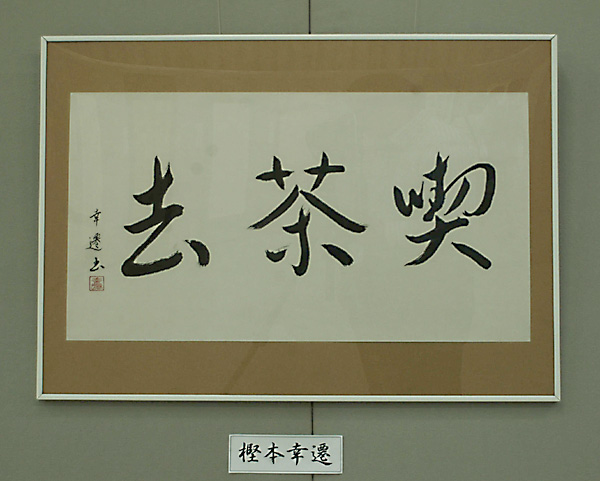 喫茶去
幸遷書
樫本幸遷